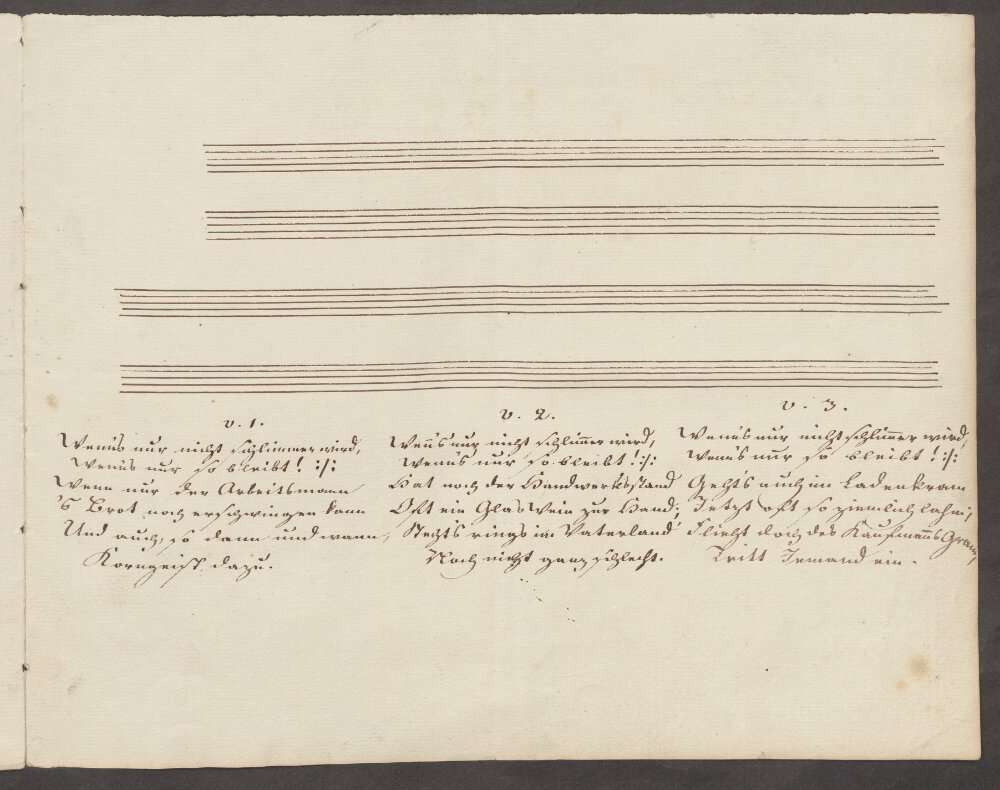 v. 1.
Wenn's nur nicht schlimmer wird,
Wenn's nur so bleibt! :/:
Wenn nur der Arbeitsmann
'S Brot noch erschwingen kann
Und auch, so dann und wann,
Korngeist dazu.
v. 2.
Wenn's nur nicht schlim̄er wird,
Wenn's nur so bleibt! :/:
Hat noch der Handwerksstand
Oft ein Glas Wein zur Hand;
Stehts rings im Vaterland
Noch nicht ganz schlecht.
v. 3.
Wenn's nur nicht schlim̄er wird,
Wenn's nur so bleibt! :/:
Geht's auch im Ladenkram
Jetzt oft so ziemlich lahm;
Flieht doch des Kaufmanns Gram,
Tritt Jemand ein.